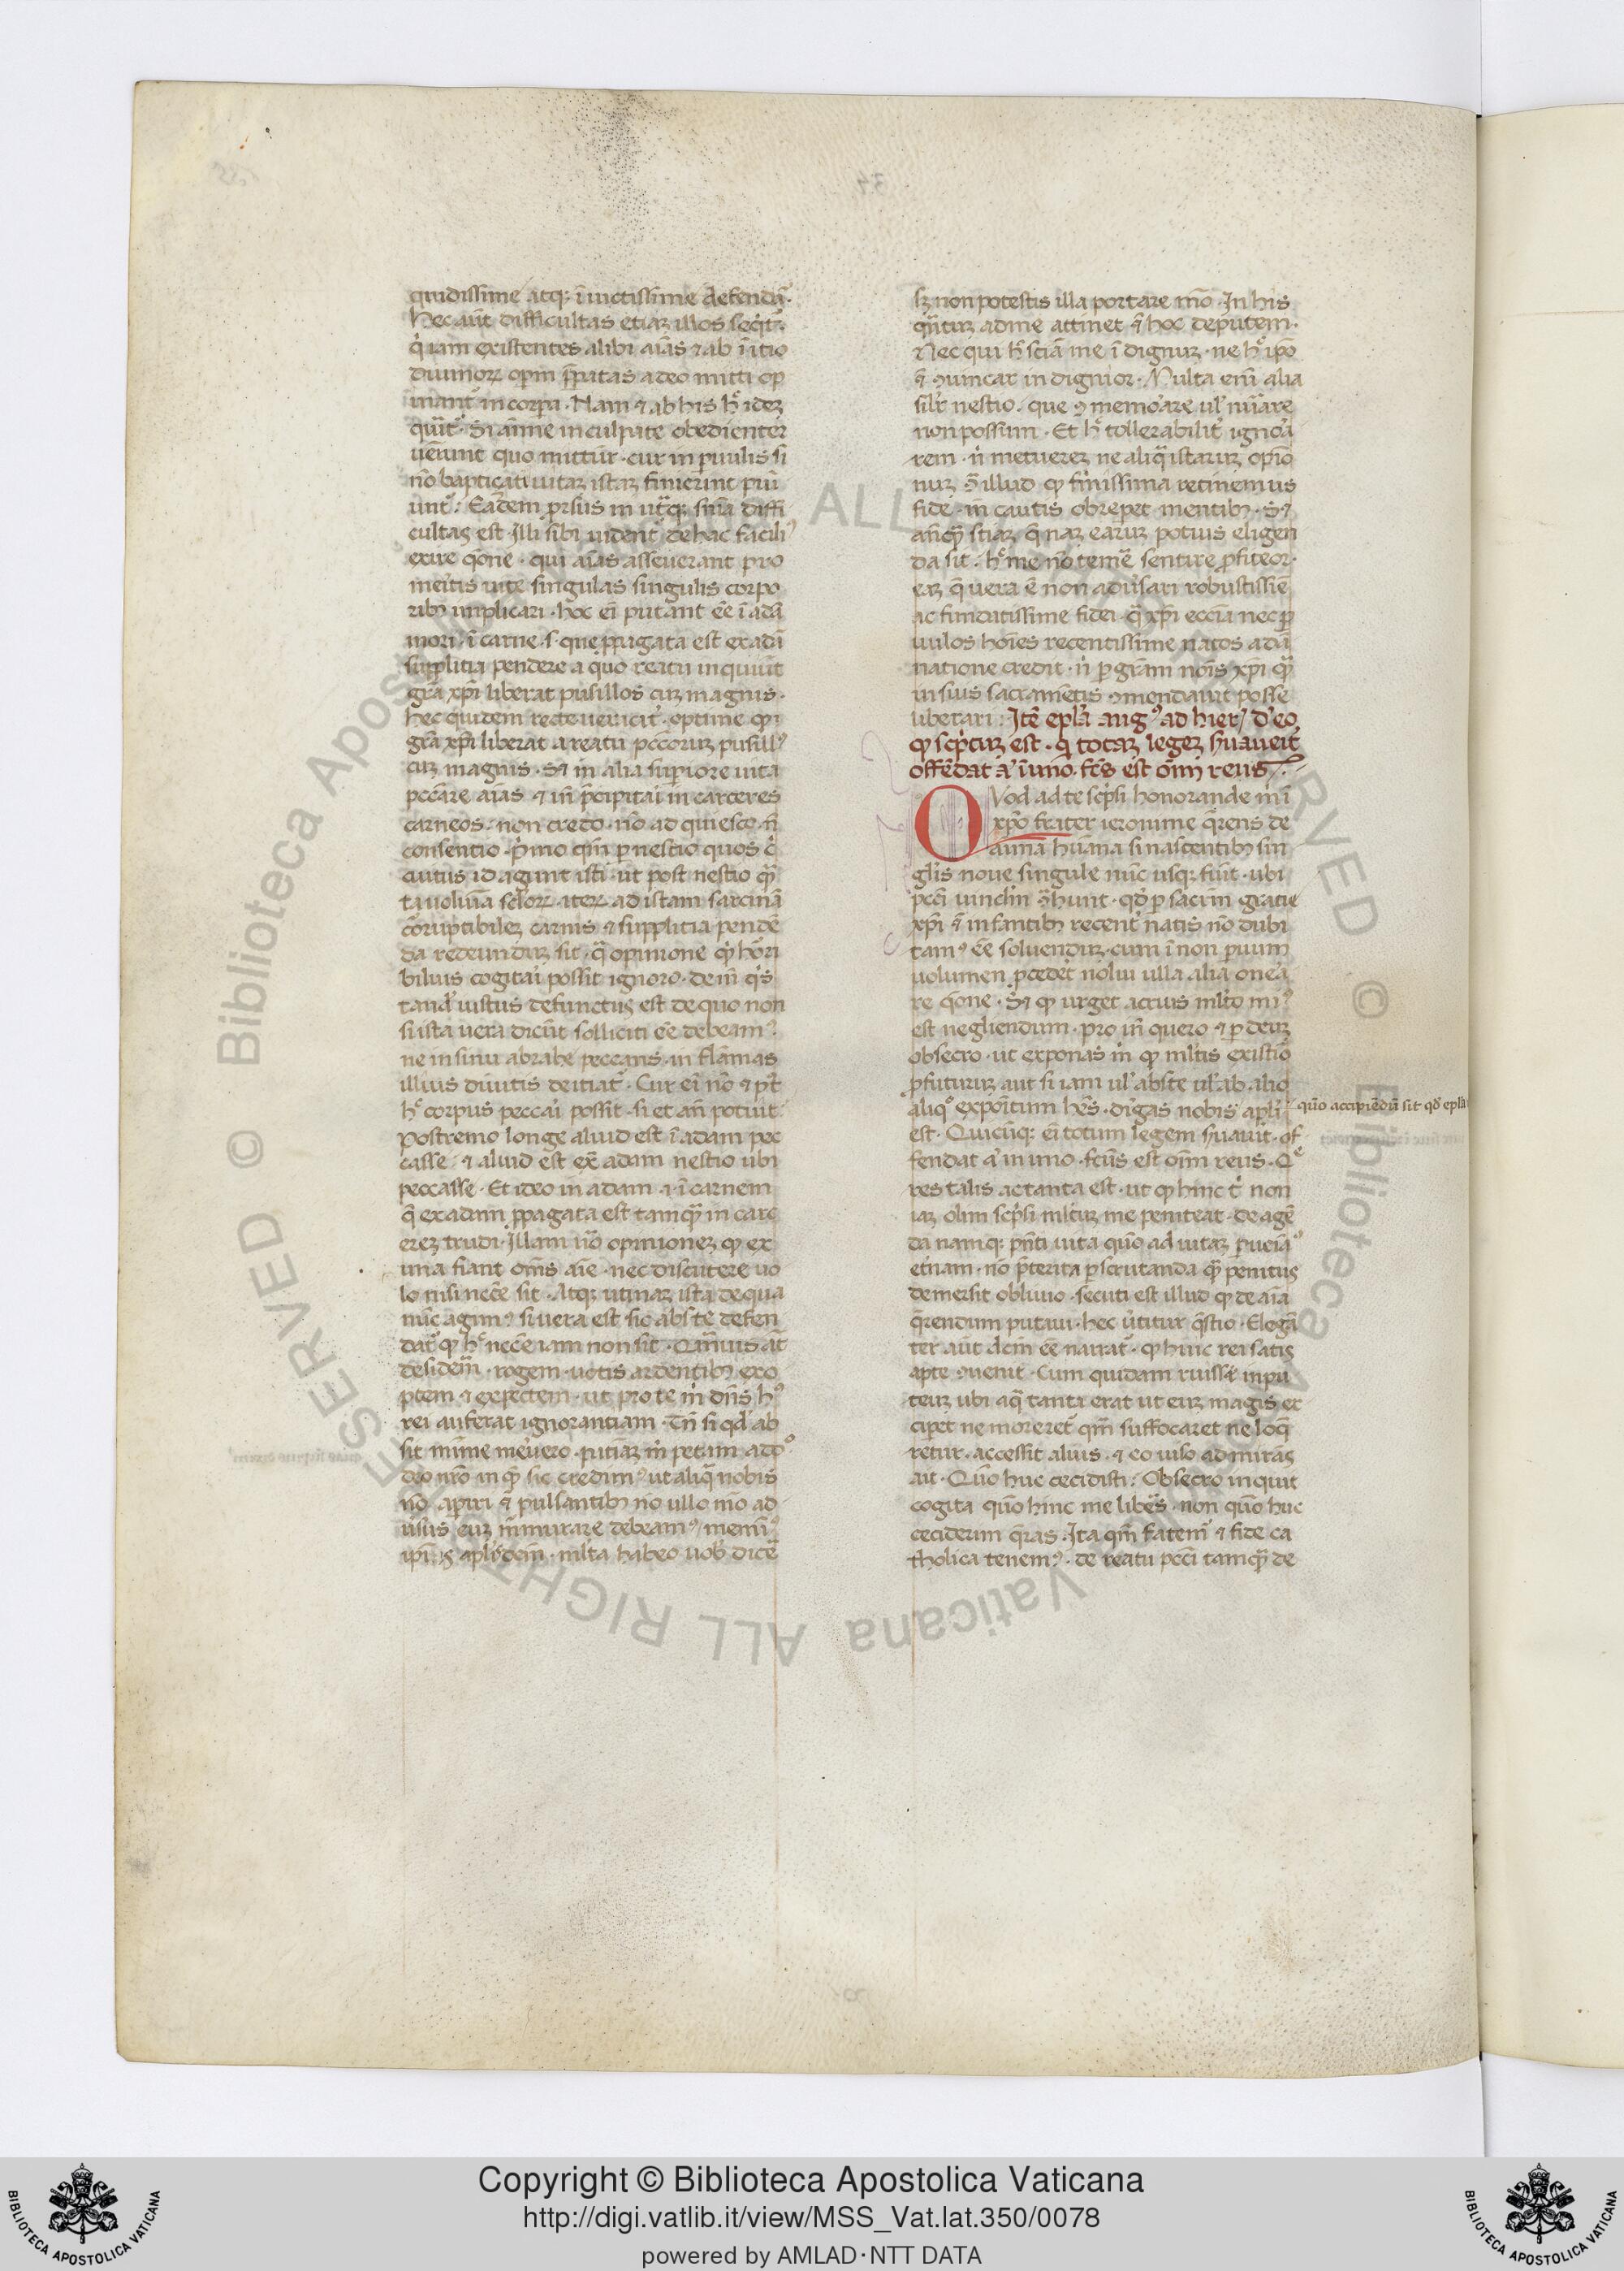 quidissime atq; īuictissime defendā.
Hec aūt difficultas etiaꝫ illos seq̇t᷑.
q̇ iam existentes alibi aīas ⁊ ab īitio
diuinoꝝ opm̄ p̄patas a deo mitti opi
nant᷑ in corpa. Nam ⁊ ab his hͨ ideꝫ
q̄rit᷑. Si aīme inculpate obedienter
ueiunt quo mittūr. cur in puulis si
nō baptiçati uitaꝫ istaꝫ finierint pui
unt᷑. Eādem prsus in ut̄q; sn̄ia diffi
cultas est. Illi sibi uident᷑ de hac faciliꝰ
exire q̄one. qui aīas asseuerant pro
meritis uite singulas singulis corpo
ribꝫ implicari. hoc eī putant eē ī adā
mori. ī carne .s. que ꝓpagata est ex adā
supplitia pendere a quo reatu inquiūt
grā xp̄i liberat pusillos cuꝫ magnis.
hec quidem recte ueriᷓcit᷑. optime ꝙ
grā xp̄i liberat a reatu pc̄coruꝫ pusillꝰ
cuꝫ magnis. Sꝫ in alia supiore uita
pcc̄are aīas ⁊ in̄ p̄cipitai in carceres
carneos. non credo. nō adquiesco. n̄
consentio. Pmo qm̄ p nescio quos c̄
cuitus id agunt isti. ut post nescio qᷓ
ta uoluīa scl̄oꝝ. iteꝝ ad istam sarcinā
coruptibileꝫ carnis ⁊ supplitia pendē
da redeunduꝫ sit. qᷓ opinione qd̓ hori
bilius cogitai possit ignoro. dein̄ q̇s
tand̓ iustus defunctus est de quo non
si ista uera dicūt solliciti eē debeamꝰ.
ne in sinu abrahe peccans in flāmas
illius diuitis deitiat᷑. Cur eī nō ⁊ pt̓
hͨ corpus peccai possit. si et an̄ potuit.
Postremo longe aliud est ī adam pec
casse. ⁊ aliud est ex̄ adam nescio ubi
peccasse. Et ideo in adam ⁊ ī carnem
q̄ ex adam ꝓpagata est tamqᷓ in carc
ereꝫ trudi. Illam u̓o opinioneꝫ ꝙ ex
una fiant om̄s aīe. nec discutere uo
lo nisi nece sit. Atq; utinaꝫ ista de qua
nūc agimꝰ si uera est sic abs te defen
dat᷑ ꝙ hͨ nece iam non sit. Qᷓmuis aūt
desidem̄. rogem. uotis ardentibꝫ exo
ptem ⁊ expectem. ut pro te m̄ dn̄s hꝰ
rei auferat ignorantiam. Tn̄ si qd̓ ab
sit mīme meruero. patiaꝫ m̄ petam a dō
deo nr̄o in qᷓ sic credimꝰ ut aliqᷓ nobis
nō aperiri ⁊ pulsantibꝫ nō ullo mō ad
usus euꝫ murmurare debeamꝰ. meminimꝰ
ip̄is apl̄is dcm̄. mlta habeo uob̓ dice᷑
sꝫ non potestis illa portare mō. In his
qᷓntuꝫ ad me attinet ⁊ hoc deputem.
Nec qui hͨ sciā me ī dignuꝫ. ne hͨ ip̄o
⁊ ꝯuincar in dignior. Multa eni alia
silr̓ nescio. que ꝯmemorare ul̓ nūare
non possum. Et hͨ tollerabilit̓ ignora
rem. n̄ metuereꝫ ne aliqᷓ istaruꝫ opio
nuꝫ ꝯ illud ꝙ firmissima retinemus
fide. in cautis obrepet mentibꝫ. Sꝫ
anteqᷓ sciaꝫ q̄ naꝫ earuꝫ potius eligen
da sit. hͨ me nō teme᷑ sentire ꝓfiteor.
eaꝫ q̄ uera ē non aduersari robustissie
ac fundatissime fidei. qᷓ xp̄i ecc̄ia nec p
uulos hoīes recentissime natos a dā
natione credit. n̄ p grām nois xp̄i qᷓ
in suis sacramētis ꝯmendauit posse
liberari. Itē epl̄a augꝰ ad hier̓ d'eo
ꝙ scp̄tuꝫ est. q̇ totaꝫ legeꝫ s̓uaueit᷑
offēdat a' ī uno. fcs̄ est oīm reus.
QVod ad te scp̄si honorande m̄ ī
xp̄o frater ieronime q̄rens de
aīma hūana si nascentibꝫ sin
gl̓is noue singule nūc usq; fiūt. ubi
pcc̄i uincl̓m ꝯt̓hunt. qd̓ p sacr̄m gratie
xp̄i ⁊ in fantibꝫ recent̓ natis nō dubi
tamꝰ eē soluenduꝫ. cum ī non paruum
uolumen ꝓcedet nolui ulla alia onea
re q̄one. Sꝫ ꝙ urget acrius ml̓to miꝰ
est negligendum. pro in̄ quero ⁊ p deuꝫ
obsecro. ut exponas m̄ ꝙ ml̓tis existio
ꝓfuturuꝫ aut si iam ul̓ abs te ul̓ ab alio
aliqᵒ expoitum hēs. dirigas nobis apl̓i
quō accipiēdū sit qd̓ epl̄a
est. Quicūq; eī totum legem s̓uauit. of
fendat a' in uno. fcūs est oīm reus. Qᵉ
res talis ac tanta est. ut ꝙ hinc t̓ non
iaꝫ olim scp̄si ml̓tuꝫ me peniteat. de agē
da namq; pn̄ti uita quō ad uitaꝫ pueiāꝰ
etnam. nō p̄terita pscrutanda qᷓ penitus
demersit obliuio. secuti est illud ꝙ de aīa
q̄rendum putaui. hec u̓titur q̄stio. Elegā
ter aūt dcm̄ eē narrat᷑. ꝙ huic rei satis
apte ꝯuenit. Cum quidam ruisset in pu
teuꝫ ubi aqᷓ tanti erat ut euꝫ magis ex
ciperet ne moreret᷑ qm̄ suffocaret ne loq̄
retur. accessit alius. ⁊ eo uiso admirās
ait. Quō huc cecidisti. Obsecro inquit
cogita quō hinc me libe̓s. non quō huc
ceciderim q̄ras. Ita qm̄ fatemꝰ ⁊ fide ca
tholica tenemꝰ. de reatu pcc̄i tamqᷓ de
Copyright © Biblioteca Apostolica Vaticana
http://digi.vatlib.it/view/MSS_Vat.lat.350/0078
powered by AMLAD·NTT DATA